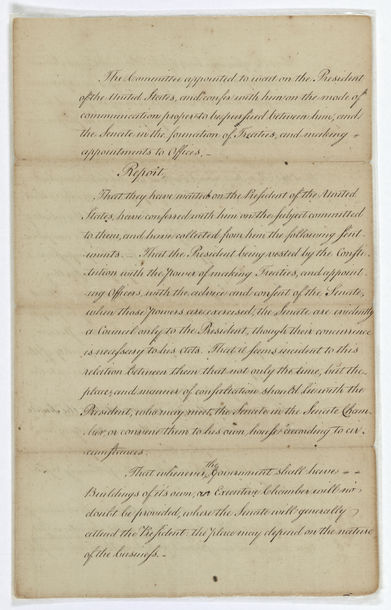 The Committee appointed to wait on the President
of the United States, and confer with him on the mode of
communication proper to be pursued between him, and
the Senate in the formation of Treaties, and making
appointments to Offices, _
Report,
That they have waited on the President of the United
States, have conferred with him on the subject committed
to them, and have collected from him the following sent-
iments _ That the President being vested by the Consti-
tution with the power of making Treaties, and appoint-
ing Officers, with the advice and consent of the Senate,
when those powers are exercised, the Senate are evidently
a Council only to the President, though their concurrence
is necessary to his Acts. That it seems incident to this
relation between them that not only the time, but the
place, and manner of consultation should lie with the
President, who may meet the Senate in the Senate Cham-
ber, or convene them to his own house according to cir-
cumstances.
That whenever the Government shall have - -
Buildings of its own, an Executive Chamber will no
doubt be provided, where the Senate will generally
attend the President the place may depend on the nature
of the business. _